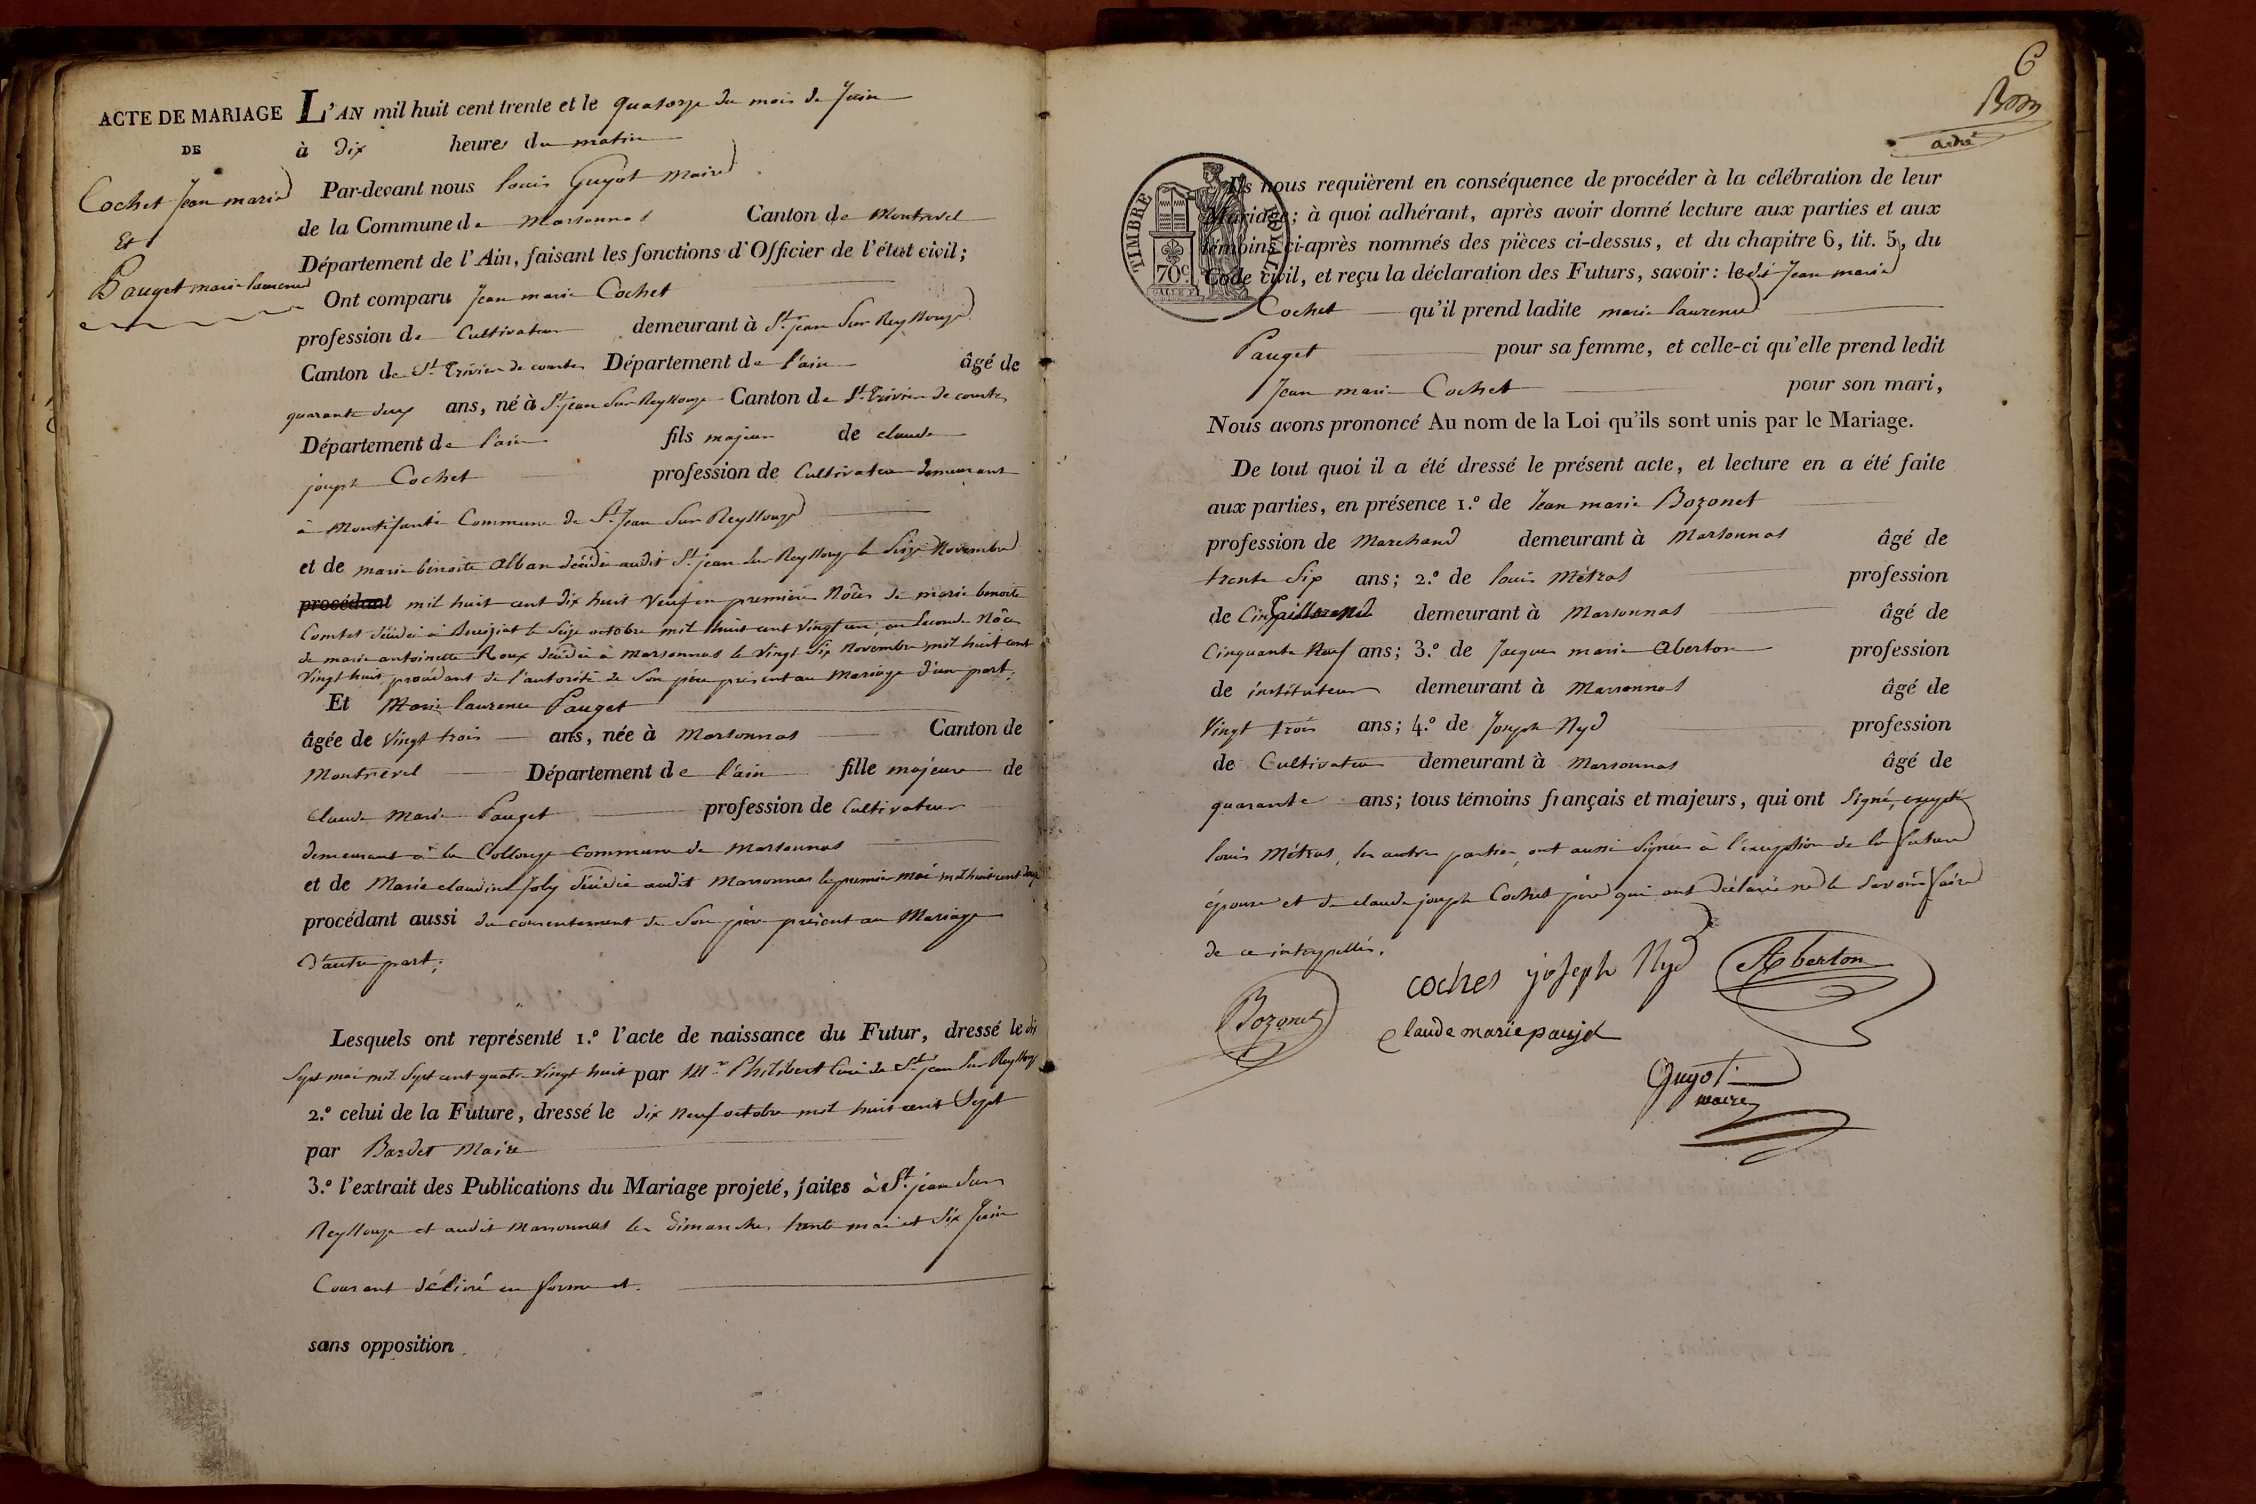 ACTE DE MARIAGE
DE
Cochet Jean marie
Et
Pauget marie laurence
L'AN mil huit cent trente et le quatorze du mois de Juin
à dix heures du matin
Par-devant nous louis Guyot Maire
de la Commune de Marsonnas Canton de Montrevel
Département de l'Ain, faisant les fonctions d'Officier de l'état civil;
Ont comparu Jean marie Cochet
profession de Cultivateur demeurant à St. jean Sur Reyssouze
Canton de St Trivier de courtes Département de l'ain âgé de
quarante deux ans, né à St. jean Sur Reyssouze Canton de St. Trivier de courtes
Département de l'ain fils majeur de claude
joseph Cochet profession de Cultivateur demeurant
à Commune de St. Jean Sur Reyssouze
et de marie benoite alban décédée audit St. jean Sur Reyssouze le Seize Novembre
procédant mil huit cent dix huit Veuf en première Nôces de marie benoite
Comtet décédée à le Seize octobre mil huit cent vingt un, en Seconde Nôces
de marie antoinette Roux décédée à Marsonnas le vingt Six Novembre mil huit cent
vingt huit, procédant de l'autorité de Son père présent au Mariage d'une part;
Et Marie laurence Pauget
âgée de Vingt trois ans, née à Marsonnas Canton de
Montrevel Département de l'ain fille majeure de
Claude Marie Pauget profession de Cultivateur
demeurant à la Collonge Commune de Marsonnas
et de Marie claudine Joly décédée audit Marsonnas le premier mai mil huit cent
procédant aussi du consentement de Son père présent au Mariage
d'autre part;
Lesquels ont représenté 1.º l'acte de naissance du Futur, dressé le dix
Sept mai mil Sept cent quatre Vingt huit par Mr. Philibert Curé de St. jean Sur Reyssouze
2.º celui de la Future, dressé le dix neuf octobre mil huit cent Sept
par Bardet Maire
3.º l'extrait des Publications du Mariage projeté, faites à St. jean Sur
Reyssouze et audit Marsonnas les dimanches trente mai et Six Juin
Courant délivré en forme et.
sans opposition
6
TIMBRE ROYAL
70c
Ils nous requièrent en conséquence de procéder à la célébration de leur
Mariage; à quoi adhérant, après avoir donné lecture aux parties et aux
témoins ci-après nommés des pièces ci-dessus, et du chapitre 6, tit. 5, du
Code civil, et reçu la déclaration des Futurs, savoir: ledit Jean marie
Cochet qu'il prend ladite marie laurence
Pauget pour sa femme, et celle-ci qu'elle prend ledit
Jean marie Cochet pour son mari,
Nous avons prononcé Au nom de la Loi qu'ils sont unis par le Mariage.
De tout quoi il a été dressé le présent acte, et lecture en a été faite
aux parties, en présence 1.º de Jean marie Bozonet
profession de Marchand demeurant à Marsonnas âgé de
trente Six ans; 2.º de louis Métras profession
de demeurant à Marsonnas âgé de
Cinquante Neuf ans; 3.º de Jacques marie Aberton profession
de instituteur demeurant à Marsonnas âgé de
Vingt trois ans; 4.º de Joseph Nyd profession
de Cultivateur demeurant à Marsonnas âgé de
quarante ans; tous témoins français et majeurs, qui ont Signé, excepté
louis Métras, les autres parties, ont aussi Signées à l'exception de la future
épouse et de claude joseph Cochet père qui ont déclaré ne le Savoir faire
de ce interpellés.
coches joseph Nyd Aberton
Bozonet claude marie paujet
Guyot
maire